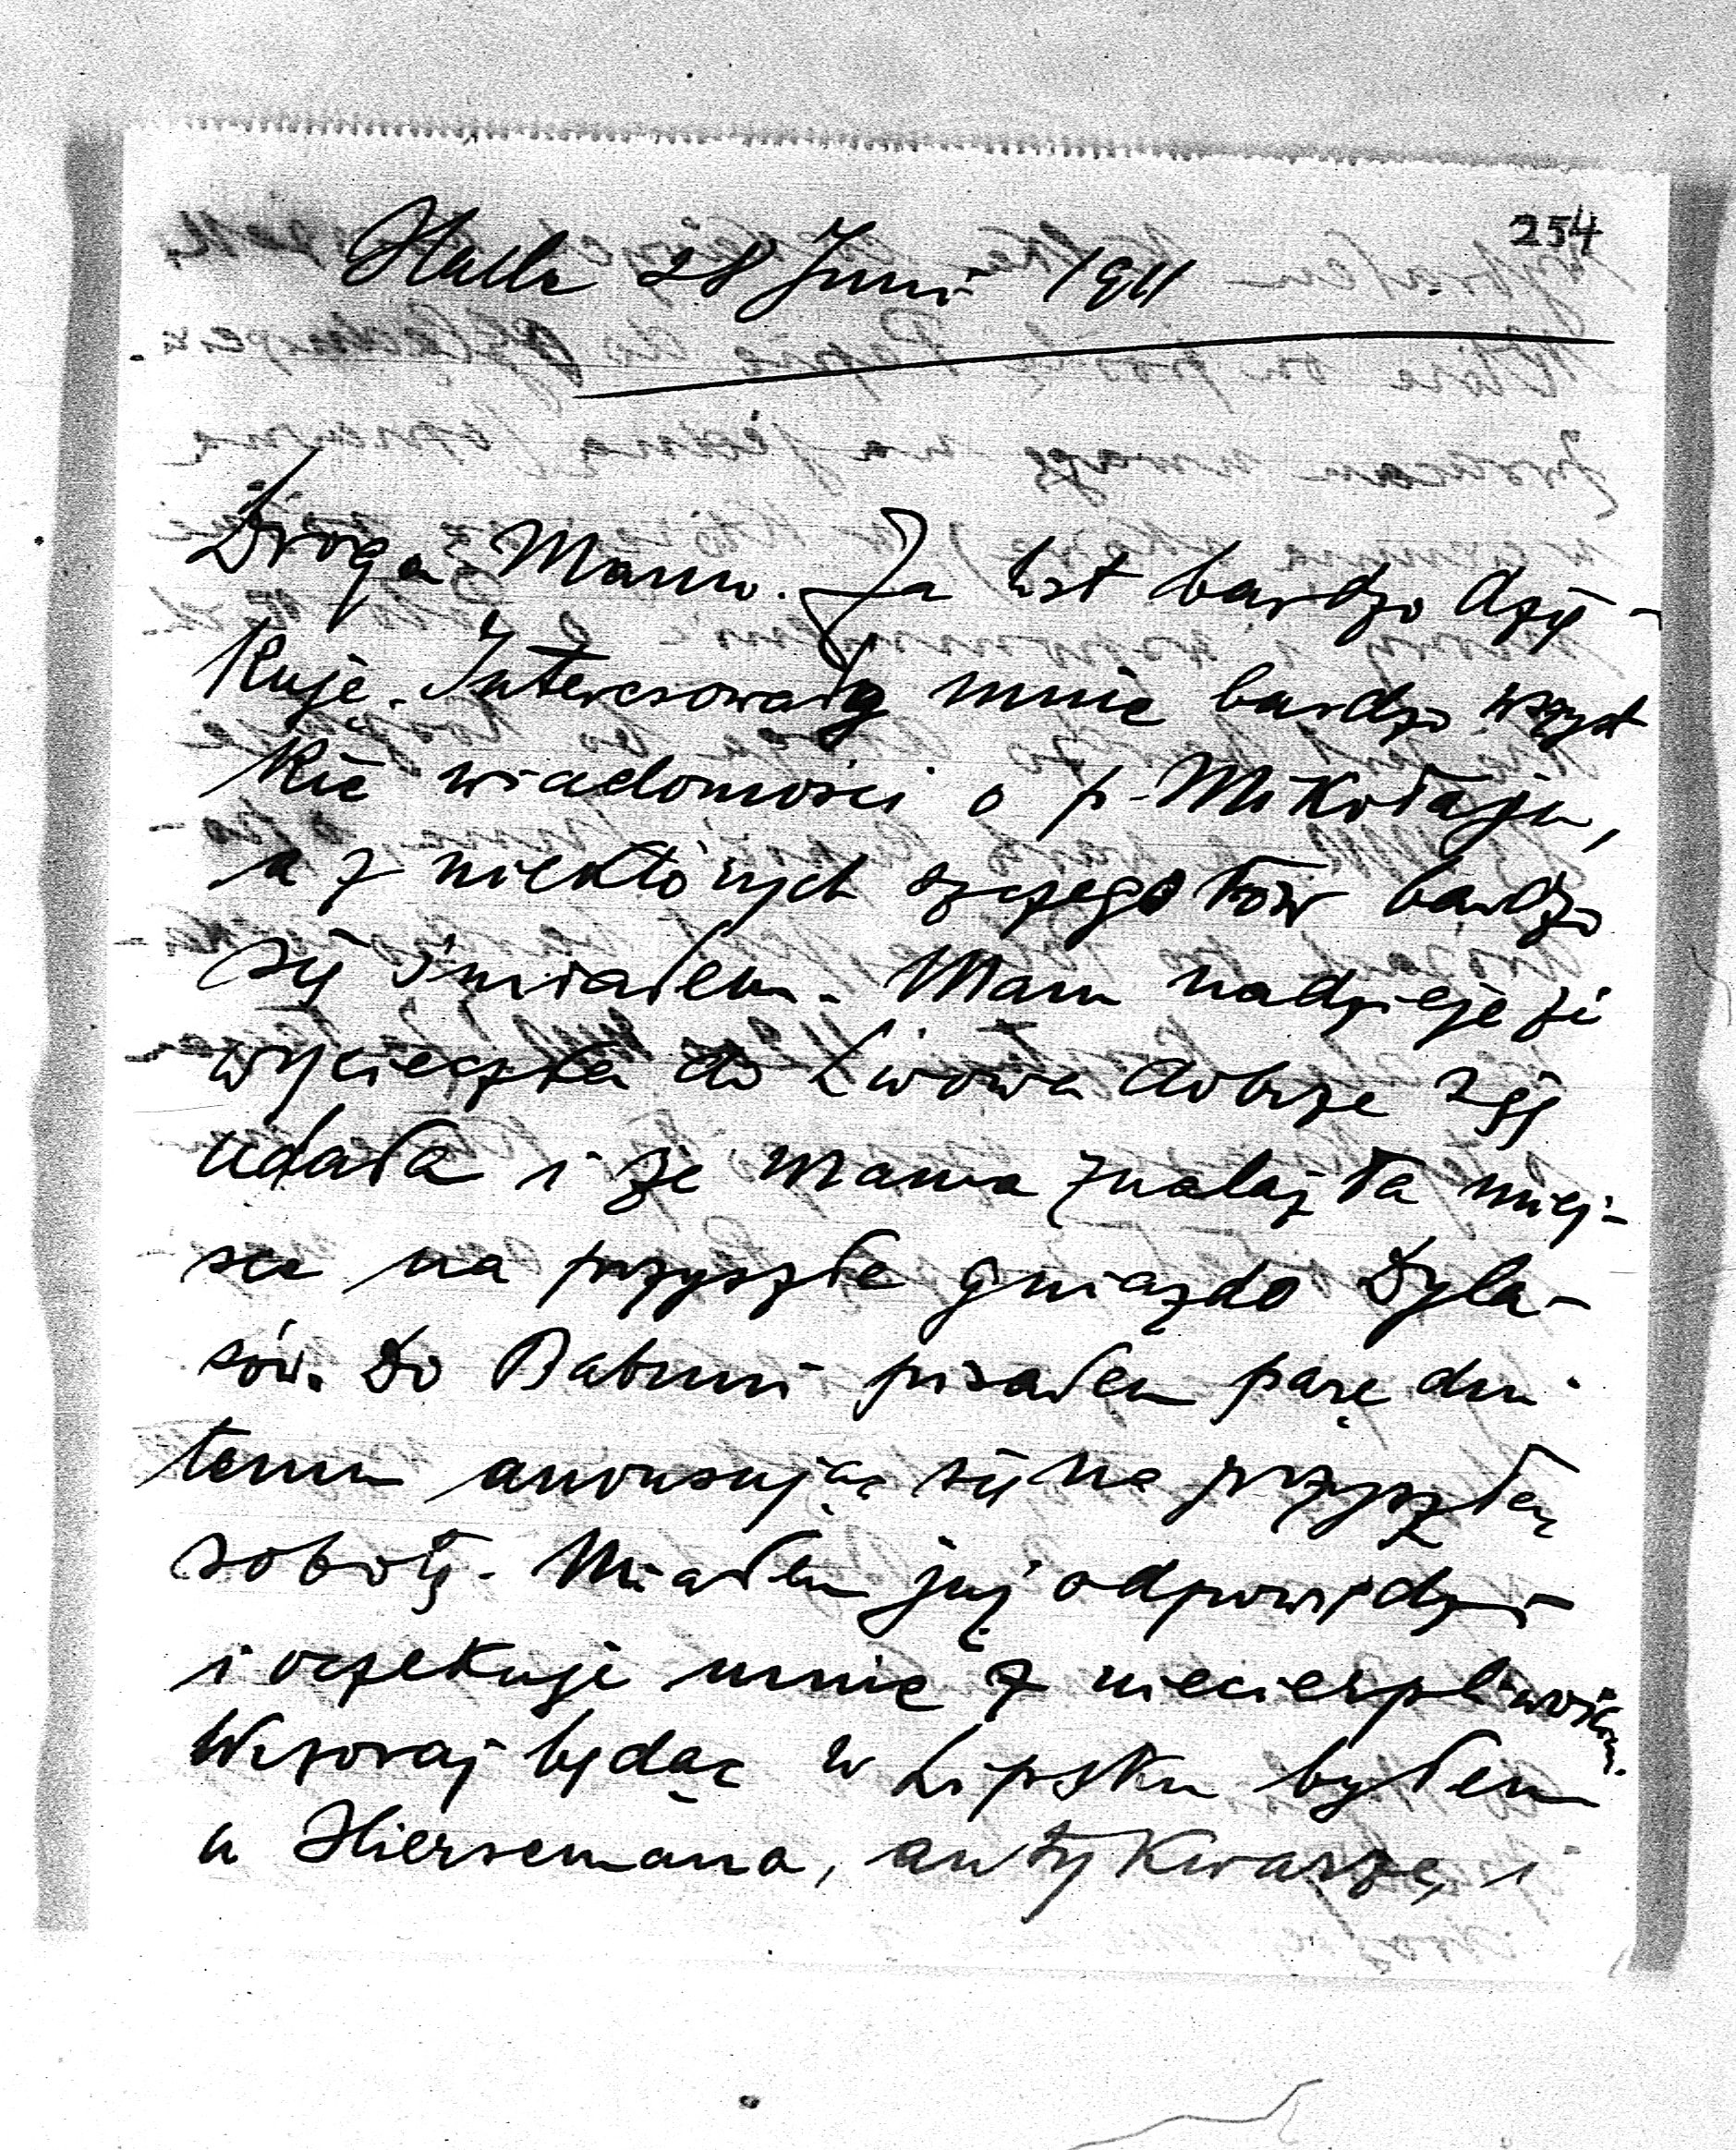 254
Halle 28 Juni 1911
Droga Mamo. Za list bardzo dzię-
kuję. Interesowały mnie bardzo wszyst
kie wiadomości o p. Mikołaju,
a z niektórych szczegółów bardzo
się śmiałem. Mam nadzieję że
wycieczka do Lwowa dobrze się
udała i że Mama znalazła miej-
sce na przyszłe gniazdo Dyla-
sów. Do Babuni pisałem parę dni
temu anonsując się na przyszłą
sobotę. Miałem już odpowiedź
i oczekuje mnie z niecierpliwością.
Wczoraj będąc w Lipsku byłem
u Hiersemana, antykwarza, i